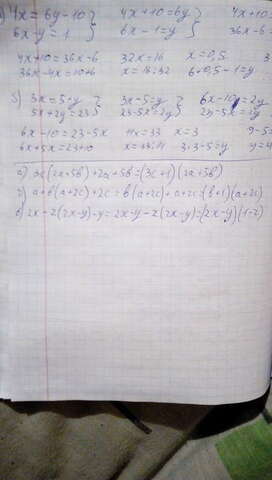 4x = 6y - 10 } 4x + 10 = 6y } 4x + 10
6x - y = 1 } 6x - 1 = y } 36x - 6
4x + 10 = 36x - 6 32x = 16 x = 0,5
36x - 4x = 10 + 6 x = 16:32 6·0,5 - 1 = y
3x = 5 + y } 3x - 5 = y } 6x - 10 = 2y
5x + 2y = 23 } 23 - 5x = 2y } 23 - 5x = 2y
6x - 10 = 23 - 5x 11x = 33 x = 3 9 - 5 =
6x + 5x = 23 + 10 x = 33:11 3·3 - 5 = y y = 4
3c(2a + 5b) + 2a + 5b = (3c + 1)(2a + 5b)
г) a + b(a + 2c) + 2c = b(a + 2c) + a + 2c = (b + 1)(a + 2c)
2x - 2(2x - y) - y = 2x - y - 2(2x - y) = (2x - y)(1 - 2)